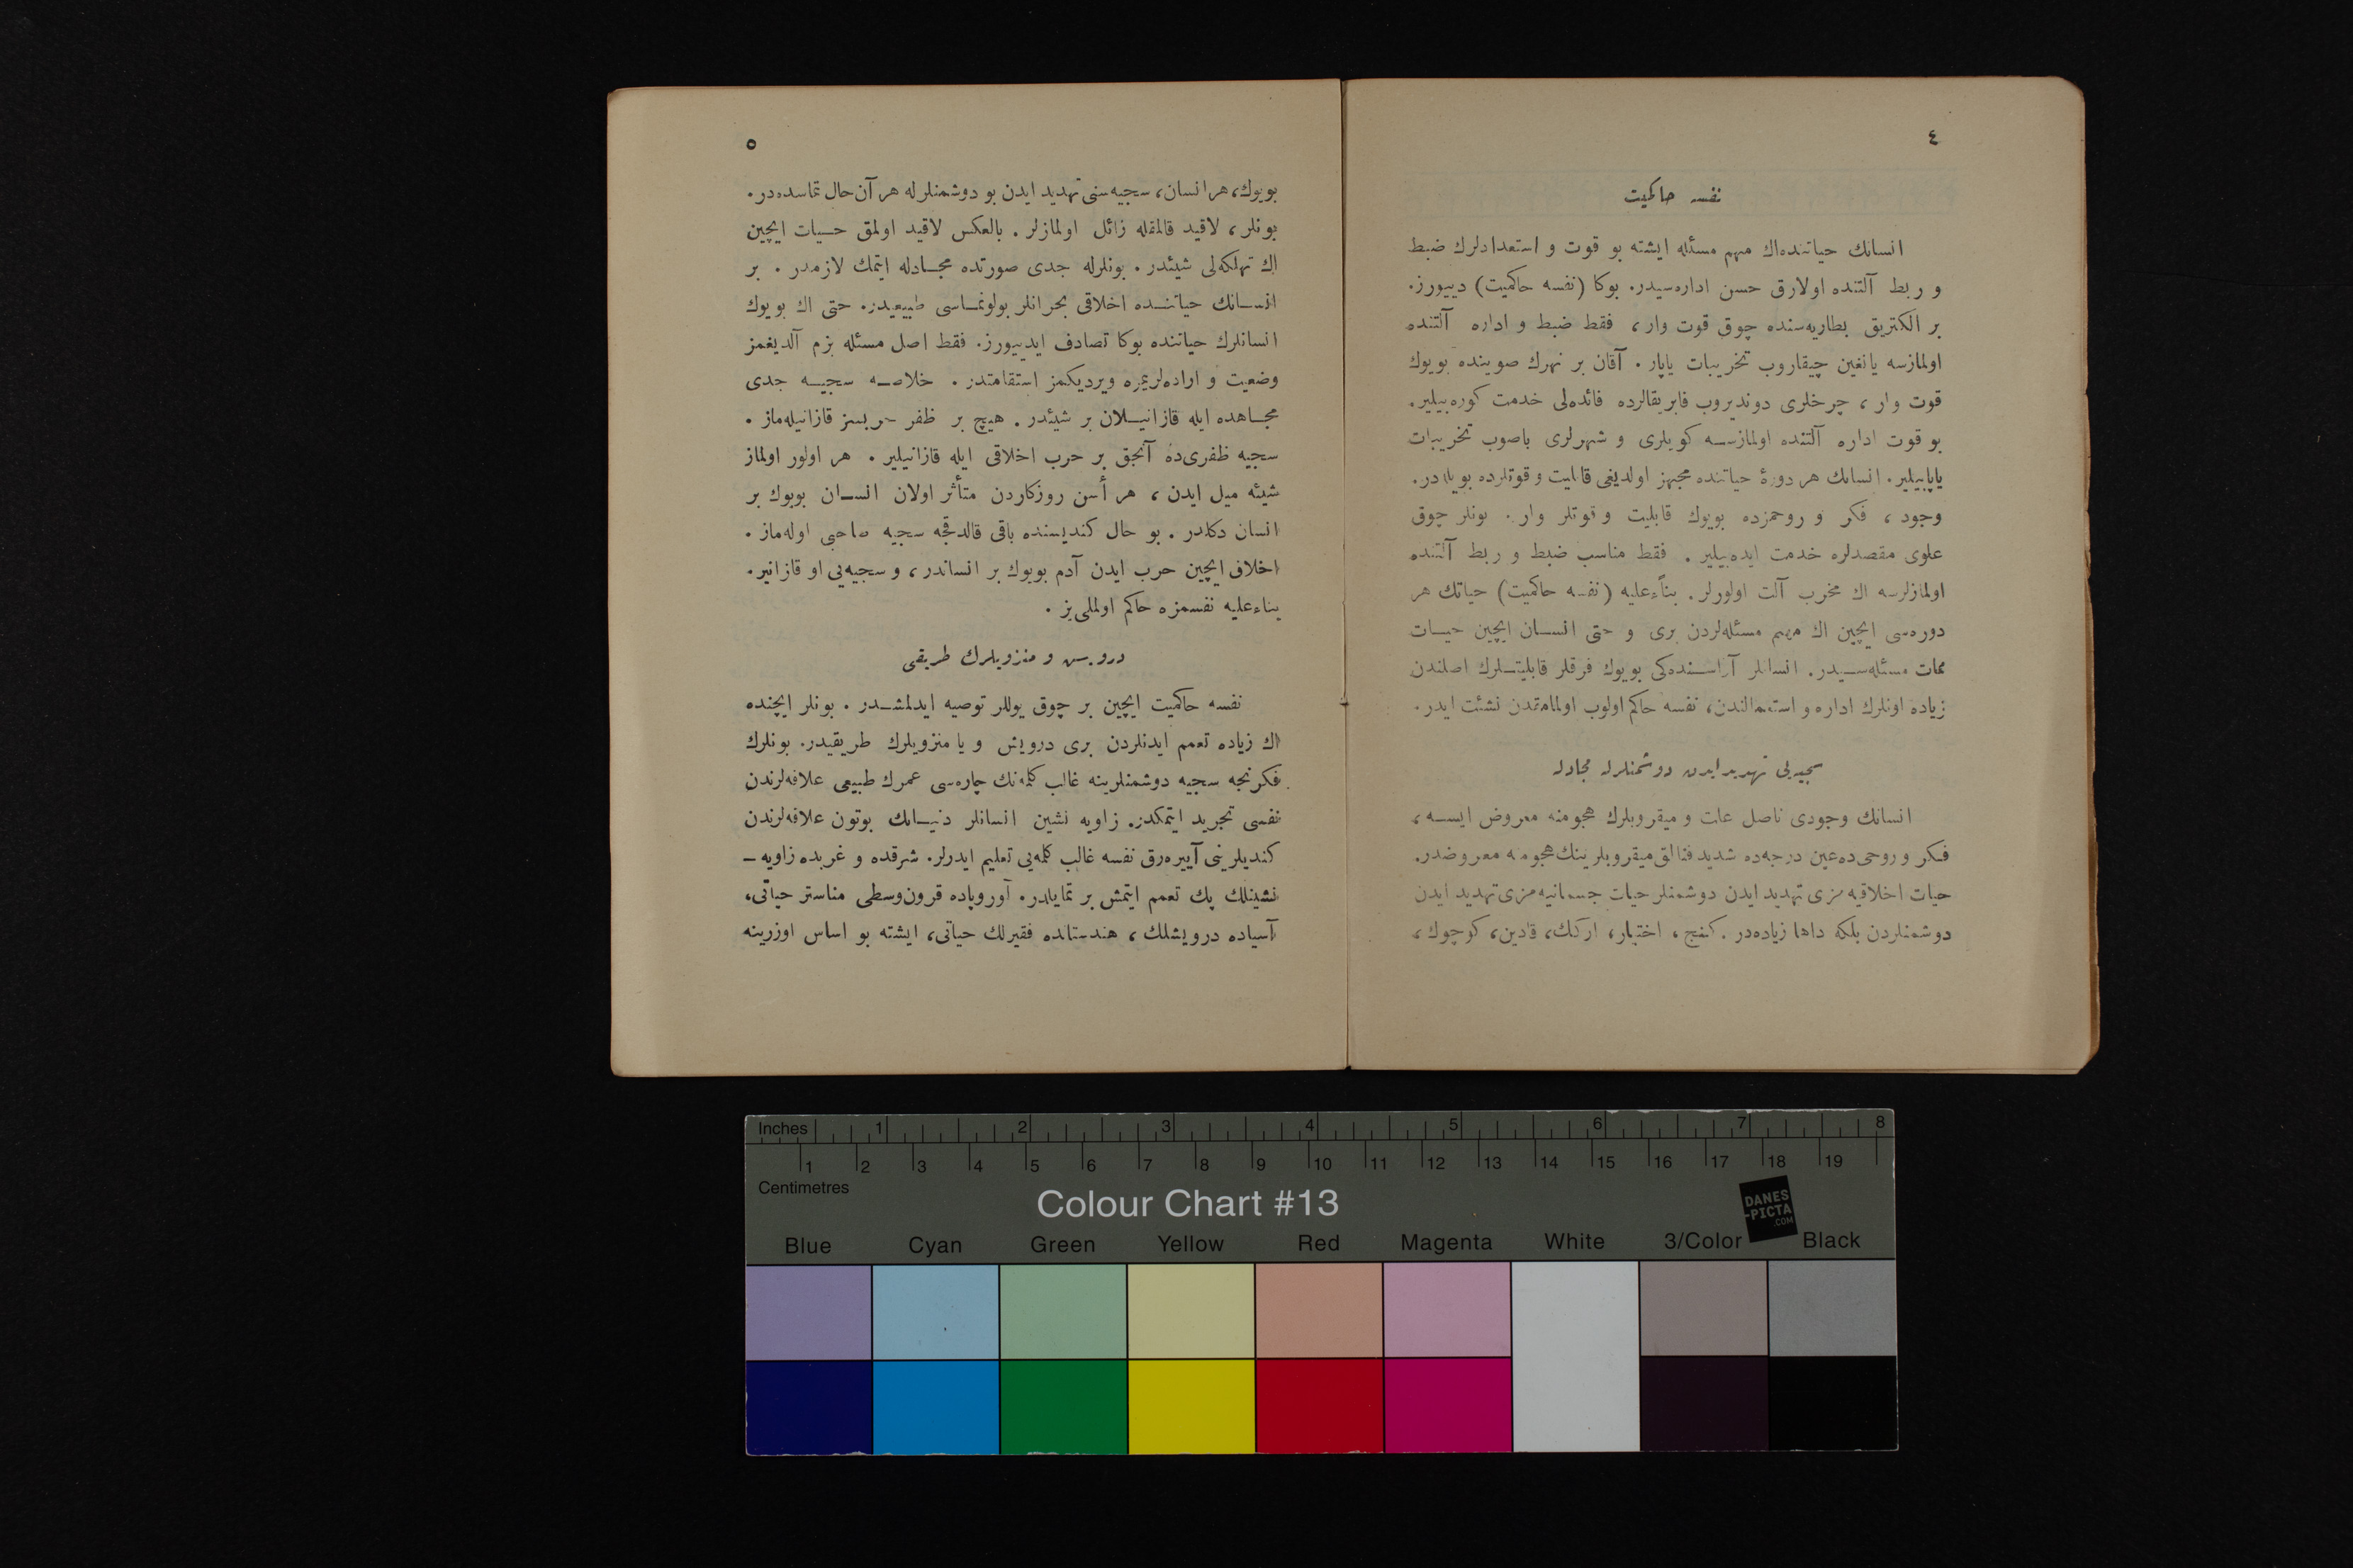 ٤
نفسه حاكميت
انسانك حياتنده‌اك مهم مسئله ايشته بو قوت و استعدادلرك ضبط
و ربط آلتنده اولارق حسن اداره‌سيدر. بوكا (نفسه حاكميت) دييورز.
بر الكتريق بطاريه‌سنده چوق قوت وار، فقط ضبط و اداره آلتنده
اولمازسه يانغين چيقاروب تخريبات ياپار. آقان بر نهرك صوينده بويوك
قوت وار، چرخلرى دونديروب فابريقالرده فائده‌لى خدمت كوره‌بيلير.
بو قوت اداره آلتنده اولمازسه كويلرى و شهرلرى باصوب تخريبات
ياپابيلير. انسانك هر دورۀ حياتنده مجهز اولديغى قابليت و قوتلرده بويله‌در.
وجود، فكر و روحمزده بويوك قابليت و قوتلر وار. بونلر چوق
علوى مقصدلره خدمت ايده‌بيلير. فقط مناسب ضبط و ربط آلتنده
اولمازلرسه اك مخرب آلت اولورلر. بناءً‌عليه (نفسه حاكميت) حياتك هر
دوره‌سى ايچين اك مهم مسئله‌لردن برى و حتى انسان ايچين حيات
ممات مسئله‌سيدر. انسانلر آراسنده‌كى بويوك فرقلر قابليتلرك اصلندن
زياده اونلرك اداره و استعمالندن، نفسه حاكم اولوب اولمامقدن نشئت ايدر.
سجيه‌يى تهديد ايدن دوشمنلرله مجادله
انسانك وجودى ناصل علت و ميقروبلرك هجومنه معروض ايسه،
فكر و روحى‌ده عين درجه‌ده شديد فنالق ميقروبلرينك هجومنه معروضدر.
حيات اخلاقيه‌مزى تهديد ايدن دوشمنلر حيات جسمانيه‌مزى تهديد ايدن
دوشمنلردن بلكه داها زياده‌در. كنج، اختيار، اركك، قادين، كوچوك،
٥
بويوك، هر انسان، سجيه‌سنى تهديد ايدن بو دوشمنلرله هر آن حال تماسده‌در.
بونلر، لاقيد قالمقله زائل اولمازلر. بالعكس لاقيد اولمق حسيات ايچين
اك تهلكه‌لى شيئدر. بونلرله جدى صورتده مجادله ايتمك لازمدر. بر
انسانك حياتنده اخلاقى بحرانلر بولونماسى طبيعيدر. حتى اك بويوك
انسانلرك حياتنده بوكا تصادف ايدييورز. فقط اصل مسئله بزم آلديغمز
وضعيت و اراده‌لريمزه ويرديكمز استقامتدر. خلاصه سجيه جدى
مجاهده ايله قازانيلان بر شيئدر. هيچ بر ظفر حربسز قازانيله‌ماز.
سجيه ظفرى‌ده آنجق بر حرب اخلاقى ايله قازانيلير. هر اولور اولماز
شيئه ميل ايدن، هر أسن روزكاردن متأثر اولان انسان بويوك بر
انسان دكلدر. بو حال كنديسنده باقى قالدقجه سجيه صاحبى اوله‌ماز.
اخلاق ايچين حرب ايدن آدم بويوك بر انساندر، و سجيه‌يى او قازانير.
بناءعليه نفسمزه حاكم اولملى‌يز.
درويش و منزويلرك طريقى
نفسه حاكميت ايچين بر چوق يوللر توصيه ايدلمشدر. بونلر ايچنده
اك زياده تعمم ايدنلردن برى درويش و يا منزويلرك طريقيدر. بونلرك
فكرنجه سجيه دوشمنلرينه غالب كلمه‌نك چاره‌سى عمرك طبيعى علاقه‌لرندن
نفسى تجريد ايتمكدر. زاويه نشين انسانلر دنيانك بوتون علاقه‌لرندن
كنديلرينى آييره‌رق نفسه غالب كلمه‌يى تعليم ايدرلر. شرقده و غربده زاويه-
نشينلك پك تعمم ايتمش بر تمايلدر. آوروپاده قرون‌وسطى مناستر حياتى،
آسياده درويشلك، هندستانده فقيرلك حياتى، ايشته بو اساس اوزرينه
Inches 1 2 3 4 5 6 7 8
1 2 3 4 5 6 7 8 9 10 11 12 13 14 15 16 17 18 19
Centimetres
Colour Chart #13
DANES
-PICTA
.COM
Blue Cyan Green Yellow Red Magenta White 3/Color Black